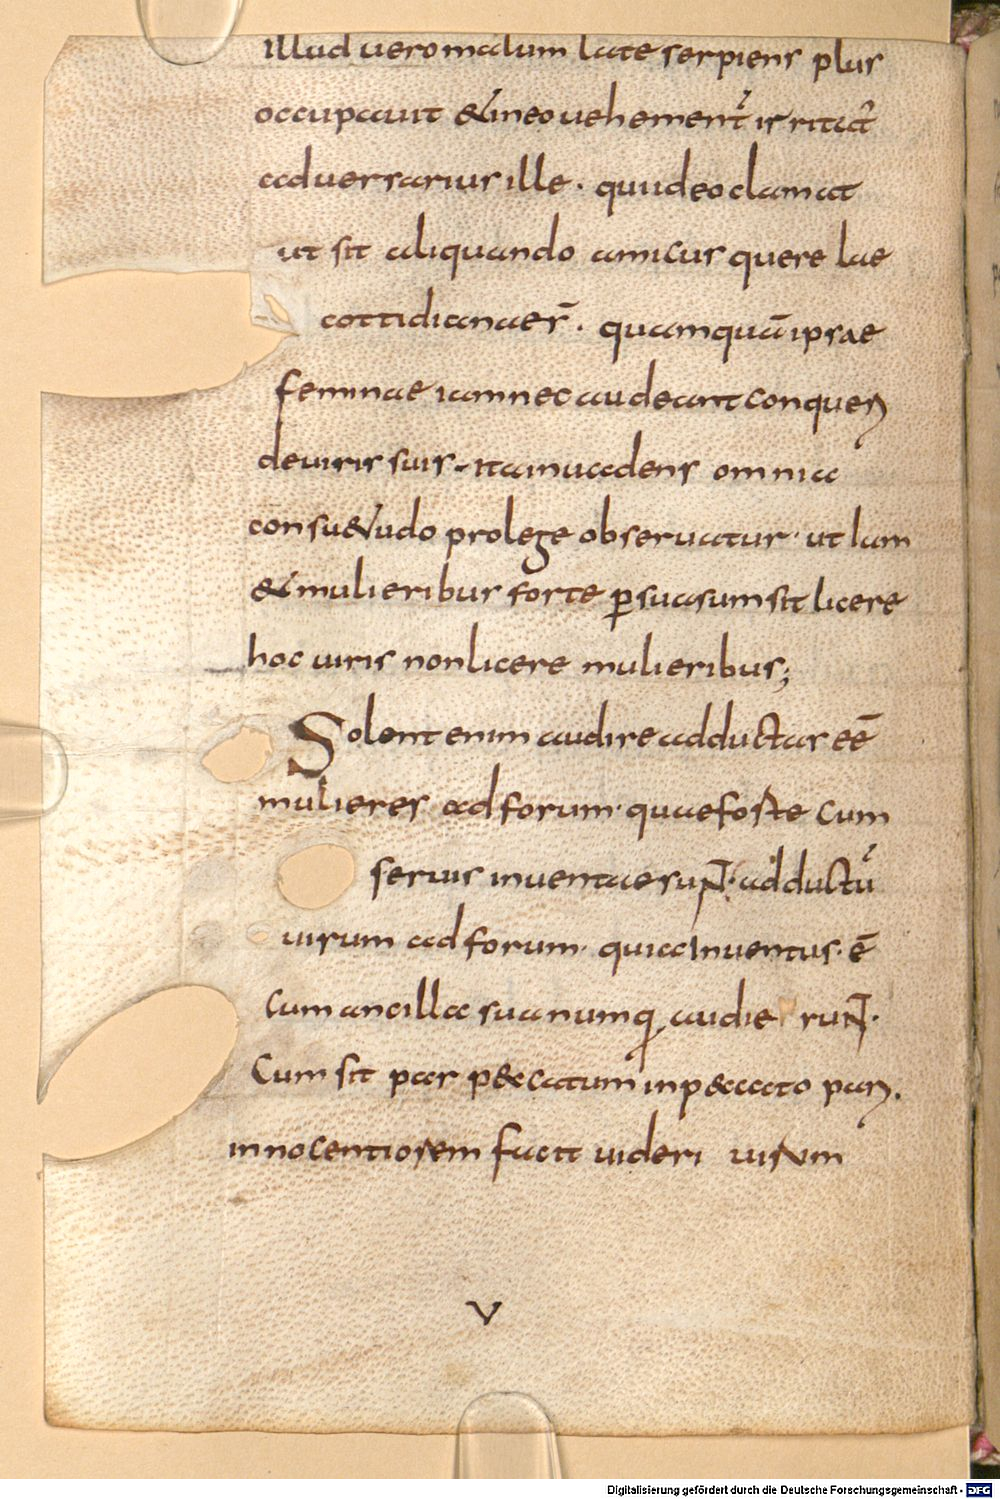 illud uero malum late serpiens plus
occupauit & ineo uehement̛ irritat̛
aduersarius ille · qui ideo clamat
ut sit aliquando amicus quere lae
cottidianae st̄ · quamquā ipsae
feminae iam nec audeant conqueri
de uiris suis - ita inuadens omnia
consu&udo pro lege obseruatur · ut iam
& mulieribus forte ꝑsuasum sit licere
hoc uiris non licere mulieribus;
Solent enim audire adductas eē
mulieres ad forum · quae forte cum
seruis inuentae sunt · adductū
uirum ad forum · quia inuentus · ē
cum ancilla sua numq̨ audie runt ·
Cum sit par p&catum inp&cato pari ·
innocentiorem facit uideri uirum
v
Digitalisierung gefördert durch die Deutsche Forschungsgemeinschaft - DFG